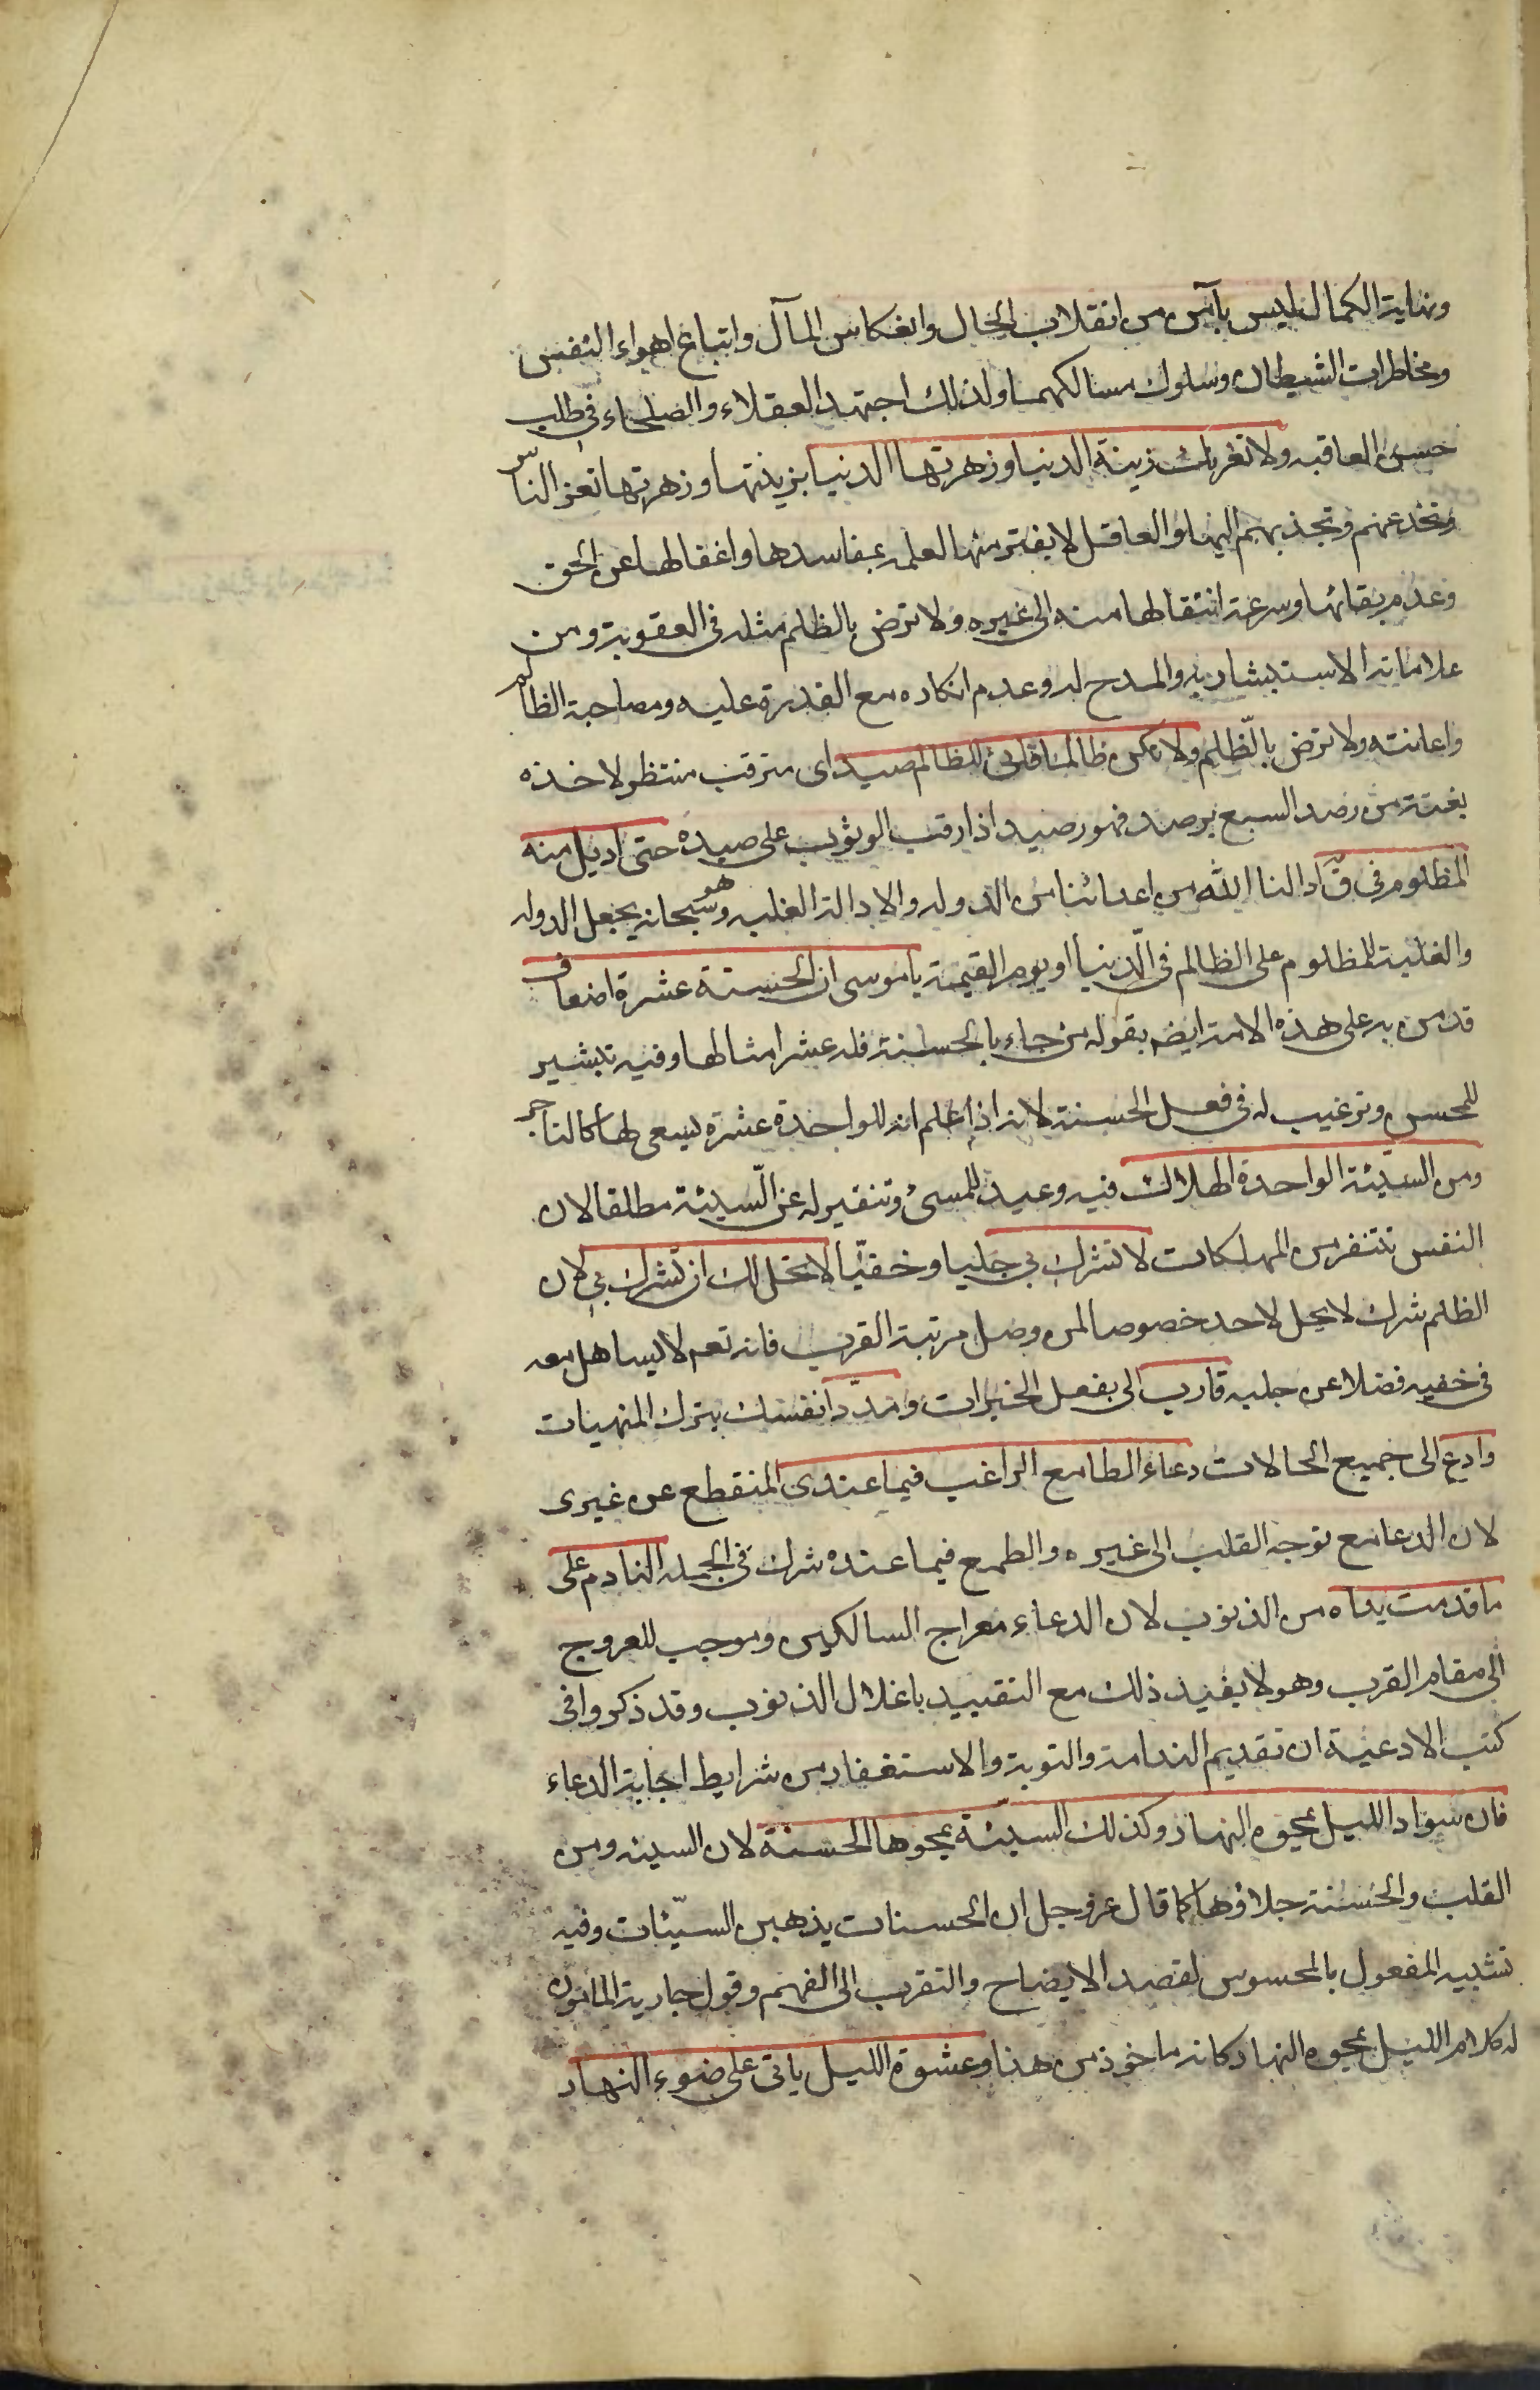 ونهاية الكمال ليس بآمن من انقلاب الحال وانعكاس المآل واتباع اهواء النفس
ومخاطرات الشيطان وسلوك مسالكهما ولذلك اجتهد العقلاء والصلحاء في طلب
حسن العاقبه ولا تغرنك زينة الدنيا وزهرتها الدنيا بزينتها وزهرتها تغر الناس
وتخدعهم وتجذبهم اليها والعاقل لا يغتر منها لعلمه بمفاسدها واغفالها عن الحق
وعدم بقائها وسرعة انتقالها منه الى غيره ولا ترض بالظلم مثله في العقوبة ومن
علاماته الاستبشار به والمدح له وعدم انكاره مع القدرة عليه ومصاحبة الظالم
واعانته ولا ترض بالظلم ولا تكن ظالما فاني للظالم رصيد اى مترقب منتظر لاخذه
بغتة من رصد السبع يرصد فهو رصيد اذا رقب الوثوب على صيده حتى اديل منه
المظلوم في ق ادالنا الله من اعدائنا من الدوله والادالة الغلبه وهو سبحانه يجعل الدوله
والغلبة للمظلوم على الظالم في الدنيا او يوم القيمة يا موسى ان الحسنة عشرة اضعاف
قد من به على هذه الامة ايضم بقوله من جاء بالحسنة فله عشر امثالها وفيه تبشير
للمحسن وترغيب له في فعل الحسنة لانه اذا علم ان للواحدة عشرة يسعى لها كالتاجر
ومن السيئة الواحدة الهلاك فيه وعيد للمسئ وتنفير له عن السيئة مطلقا لان
النفس تتنفر من المهلكات لا تشرك بي جليا وخفيا لا تحل لك ان تشرك بي لان
الظلم شرك لا يحل لاحد خصوصا لمن وصل مرتبة القرب فانه تعم لا يساهل معه
في خفيه فضلا عن جليه قارب الى بفعل الخيرات وسدد انفسك بترك المنهيات
وادع الى جميع الحالات دعاء الطامع الراغب فيما عندى المنقطع عن غيرى
لان الدعا مع توجه القلب الى غيره والطمع فيما عنده شرك في الجمله النادم على
ما قدمت يداه من الذنوب لان الدعاء معراج السالكين وموجب للعروج
الى مقام القرب وهو لا يفيد ذلك مع التقييد باغلال الذنوب وقد ذكروا في
كتب الادعية ان تقديم الندامة والتوبة والاستغفار من شرايط اجابة الدعاء
فان سواد الليل يمحوه النهار وكذلك السيئة يمحوها الحسنة لان السيئه وسن
القلب والحسنة جلاؤها كما قال عز وجل ان الحسنات يذهبن السيئات وفيه
تشبيه المعقول بالمحسوس لقصد الايضاح والتقرب الى الفهم وقول جارية المامون
له كلام الليل يمحوه النهار كانه ماخوذ من هنا وعشوة الليل ياتى على ضوء النهار